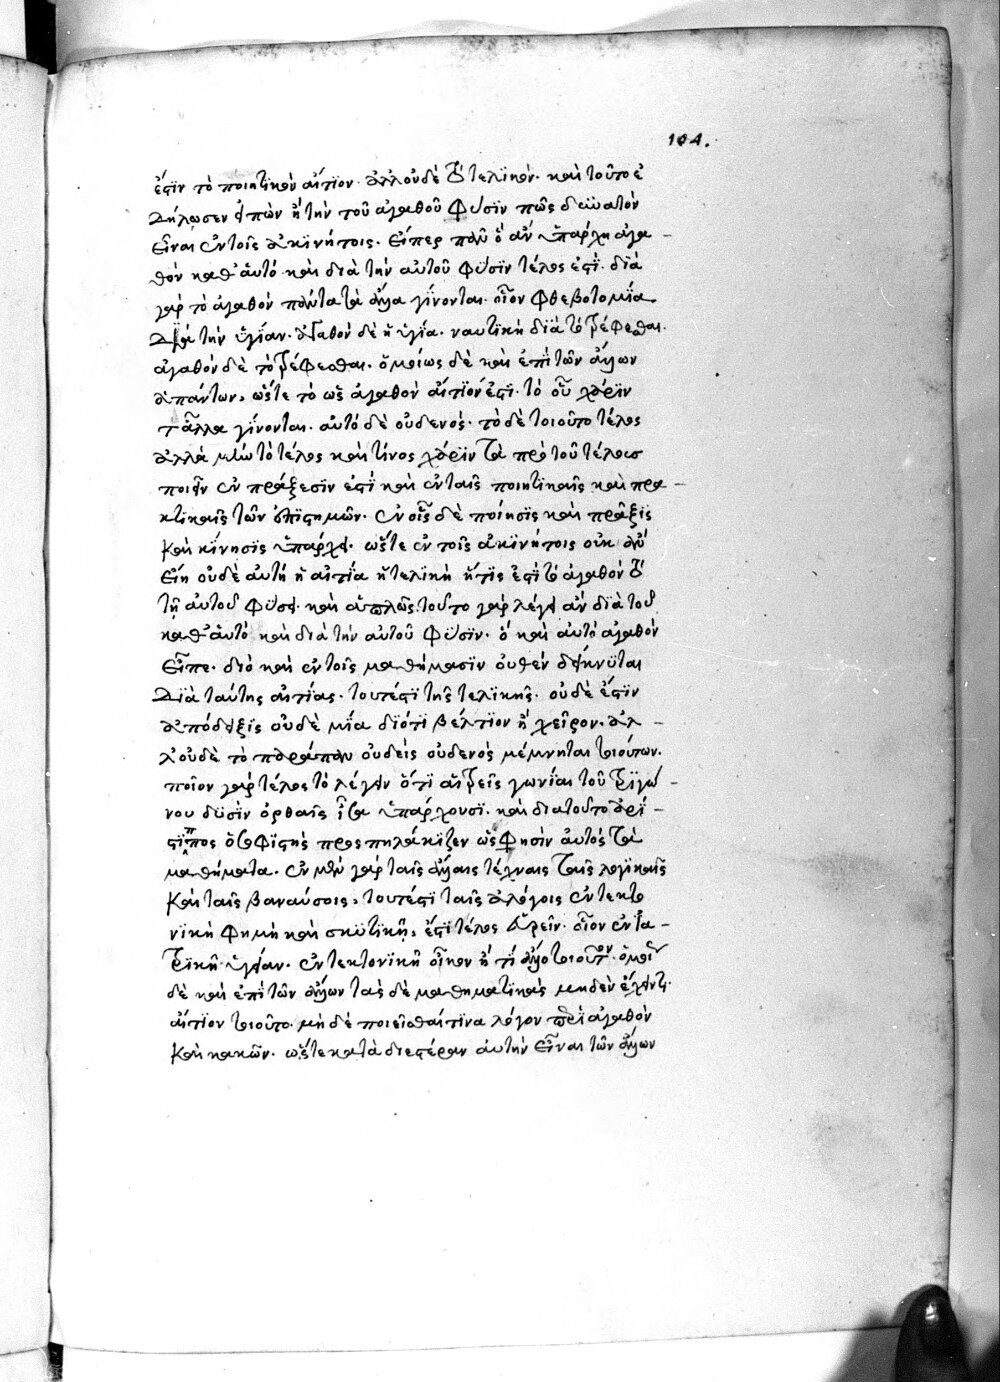 104.
ἐστὶν τὸ ποιητικὸν αἴτιον. ἀλλ' οὐδὲ τὸ τελικόν. καὶ τοῦτο ἐ
δήλωσεν εἰπὼν ἢ τὴν τοῦ ἀγαθοῦ φύσιν πῶς δυνατὸν
εἶναι ἐν τοῖς ἀκινήτοις. εἴπερ πᾶν ὃ ἂν ὑπάρχῃ ἀγα-
θὸν καθ' αὑτὸ καὶ διὰ τὴν αὑτοῦ φύσιν τέλος ἐστί. διὰ
γὰρ τὸ ἀγαθὸν πάντα τὰ ἄλλα γίνονται. οἷον φλεβοτομία
διὰ τὴν ὑγίαν. ἀγαθὸν δὲ ἡ ὑγία. ναυτικὴ διὰ τὸ τρέφεσθαι.
ἀγαθὸν δὲ τὸ τρέφεσθαι. ὁμοίως δὲ καὶ ἐπὶ τῶν ἄλλων
ἁπάντων, ὥστε τὸ ὡς ἀγαθὸν αἴτιόν ἐστι τὸ οὗ χάριν
τἆλλα γίνονται. αὐτὸ δὲ οὐδενός. τὸ δὲ τοιοῦτο τέλος
ἀλλὰ μὴν τὸ τέλος καὶ τίνος χάριν τὰ πρὸ τοῦ τέλους
ποιεῖν ἐν πράξεσίν ἐστι καὶ ἐν ταῖς ποιητικαῖς καὶ πρα-
κτικαῖς τῶν ἐπιστημῶν. ἐν οἷς δὲ ποίησις καὶ πρᾶξις
καὶ κίνησις ὑπάρχει. ὥστε ἐν τοῖς ἀκινήτοις οὐκ ἂν
εἴη οὐδὲ αὐτὴ ἡ αἰτία ἡ τελικὴ ἥτις ἐστὶ τὸ ἀγαθὸν τὸ
τῇ αὑτοῦ φύσει. καὶ ἁπλῶς τοῦτο γὰρ λέγει ἂν διὰ τοῦ
καθ' αὑτὸ καὶ διὰ τὴν αὑτοῦ φύσιν. ὃ καὶ αὐτὸ ἀγαθὸν
εἶπε. διὸ καὶ ἐν τοῖς μαθήμασιν οὐθὲν δείκνυται
διὰ ταύτης αἰτίας. τουτέστι τῆς τελικῆς. οὐδὲ ἔστιν
ἀπόδειξις οὐδὲ μία διότι βέλτιον ἢ χεῖρον. ἀλ-
λ' οὐδὲ τὸ παράπαν οὐδεὶς οὐδενὸς μέμνηται τοιούτων.
ποῖον γὰρ τέλος τὸ λέγειν ὅτι αἱ τρεῖς γωνίαι τοῦ τριγώ-
νου δυσὶν ὀρθαῖς ἴσαι ὑπάρχουσι. καὶ διὰ τοῦτο ἀρί-
στιππος ὁ σοφιστὴς προσπηλάκιζεν ὥς φησιν αὐτὸς τὰ
μαθήματα. ἐν μὲν γὰρ ταῖς ἄλλαις τέχναις ταῖς λογικαῖς
καὶ ταῖς βαναύσοις, τουτέστι ταῖς ἀλόγοις ἐν τεκτο
νικῇ φημὶ καὶ σκυτικῇ, ἔστι τέλος εὑρεῖν. οἷον ἐν ἰα-
τρικῇ ὑγίειαν. ἐν τεκτονικῇ οἶκον ἤ τι ἄλλο τοιοῦτον. ὁμοίως
δὲ καὶ ἐπὶ τῶν ἄλλων τὰς δὲ μαθηματικὰς μηδὲν ἔχειν τι
αἴτιον τοιοῦτο. μὴ δὲ ποιεῖσθαί τινα λόγον περὶ ἀγαθῶν
καὶ κακῶν. ὥστε κατὰ διεστέραν αὐτὴν εἶναι τῶν ἄλλων